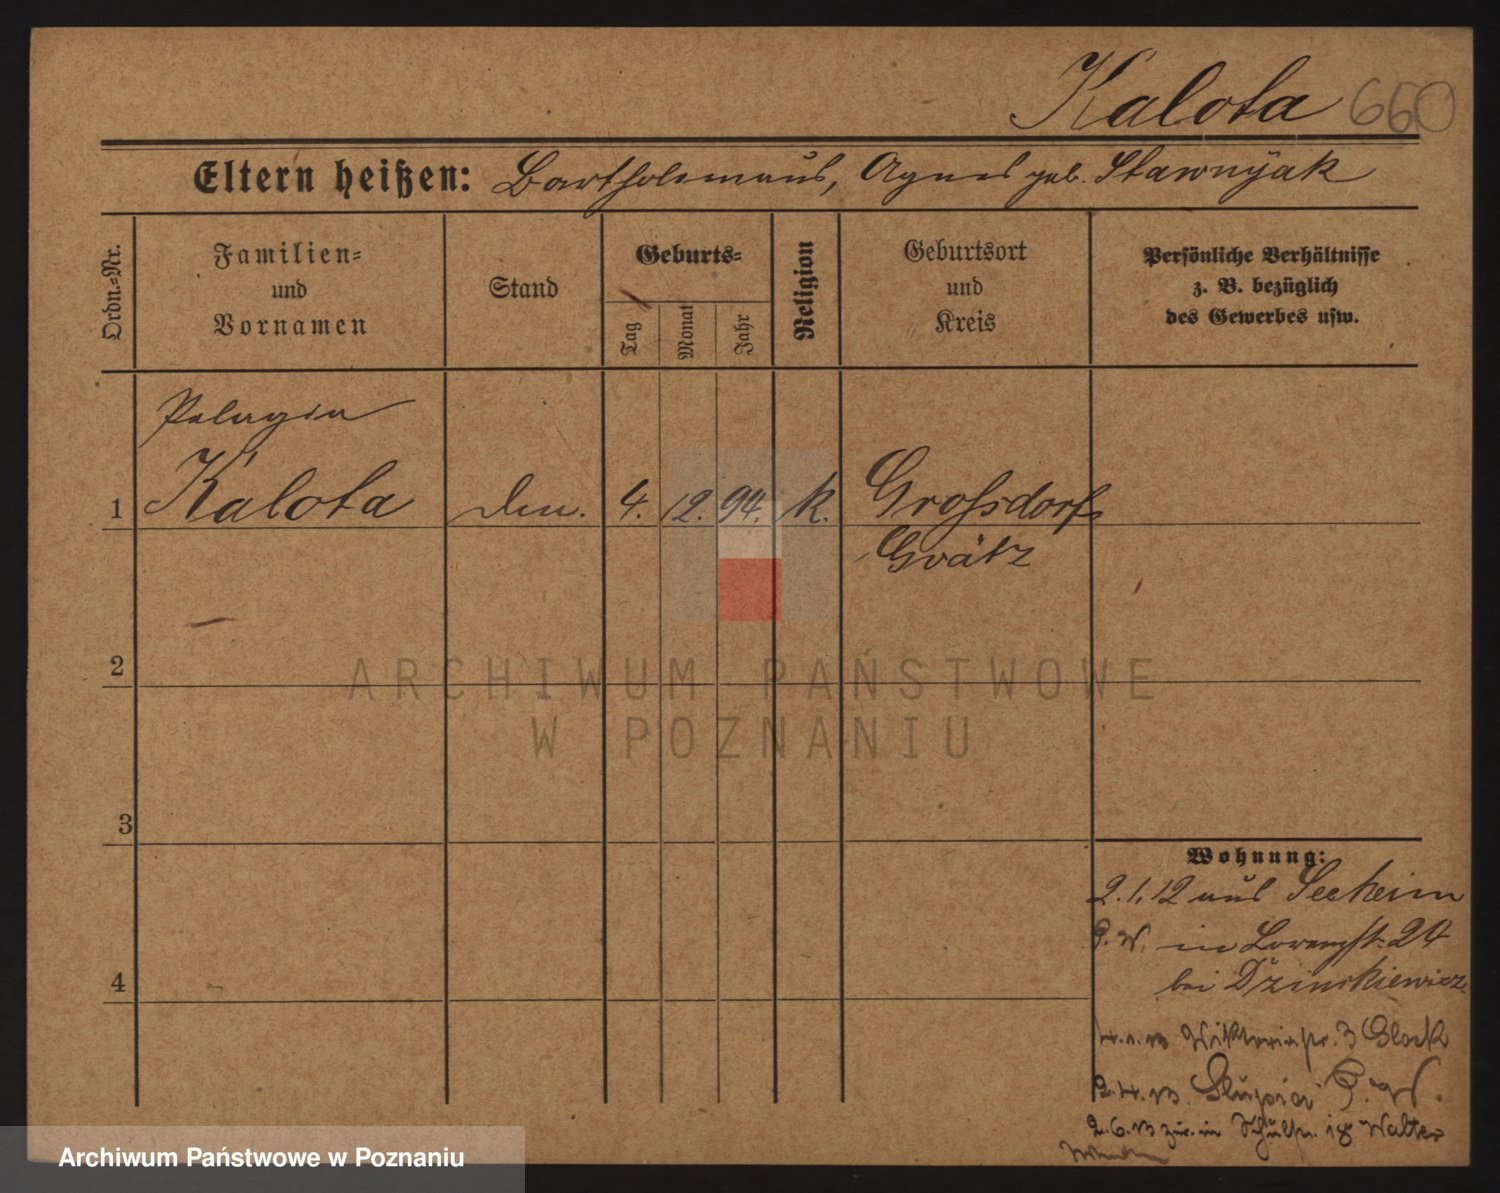 Kalota 660
Eltern heißen: Bartholomäus, Agnes geb. Stawnyak
Ordn.-Nr.
Familien-
und
Vornamen
Stand
Geburts-
Tag
Monat
Jahr
Religion
Geburtsort
und
Kreis
Persönliche Verhältnisse
z. B. bezüglich
des Gewerbes usw.
Pelagia
1 Kalota 4. 12. 94. k. Großdorf
Grätz
2
3
4
Wohnung:
2.1.12 aus Seeheim
P. W. in Lorenzstr. 24
bei Dzinskiewicz
Viktoriastr. 3 Glock
Slupia P. W.
2.6.13 zur. in Schulstr. 18 Walter
ARCHIWUM PAŃSTWOWE
W POZNANIU
Archiwum Państwowe w Poznaniu